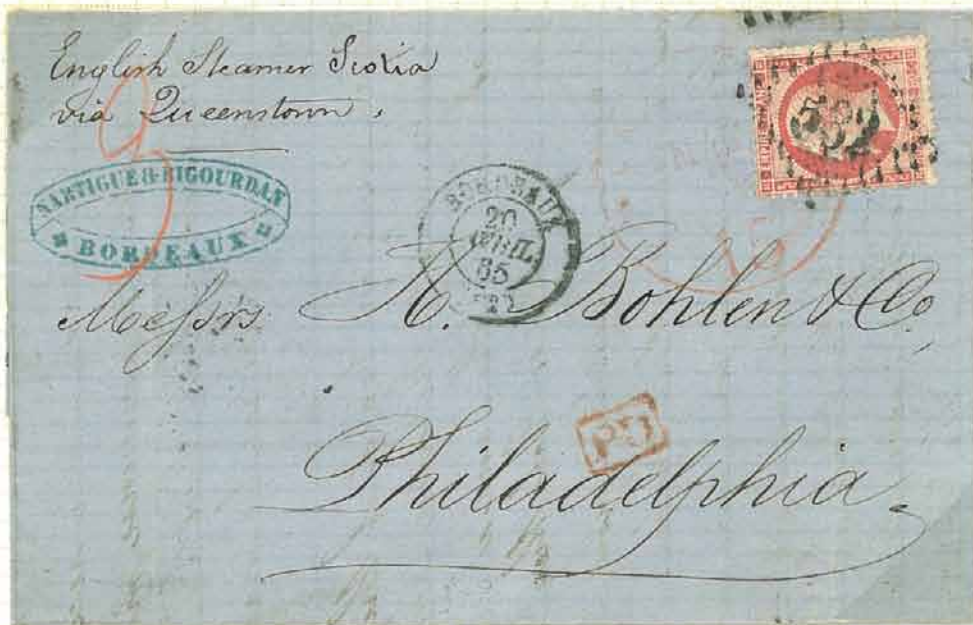 English Steamer Scotia
via Queenstown.
LARTIGUE & BIGOURDAN
BORDEAUX
BORDEAUX
20
AVRIL
65
(32)
532
EMPIRE FRANC
3
PD
Messrs A. Bohlen & Co
Philadelphia.